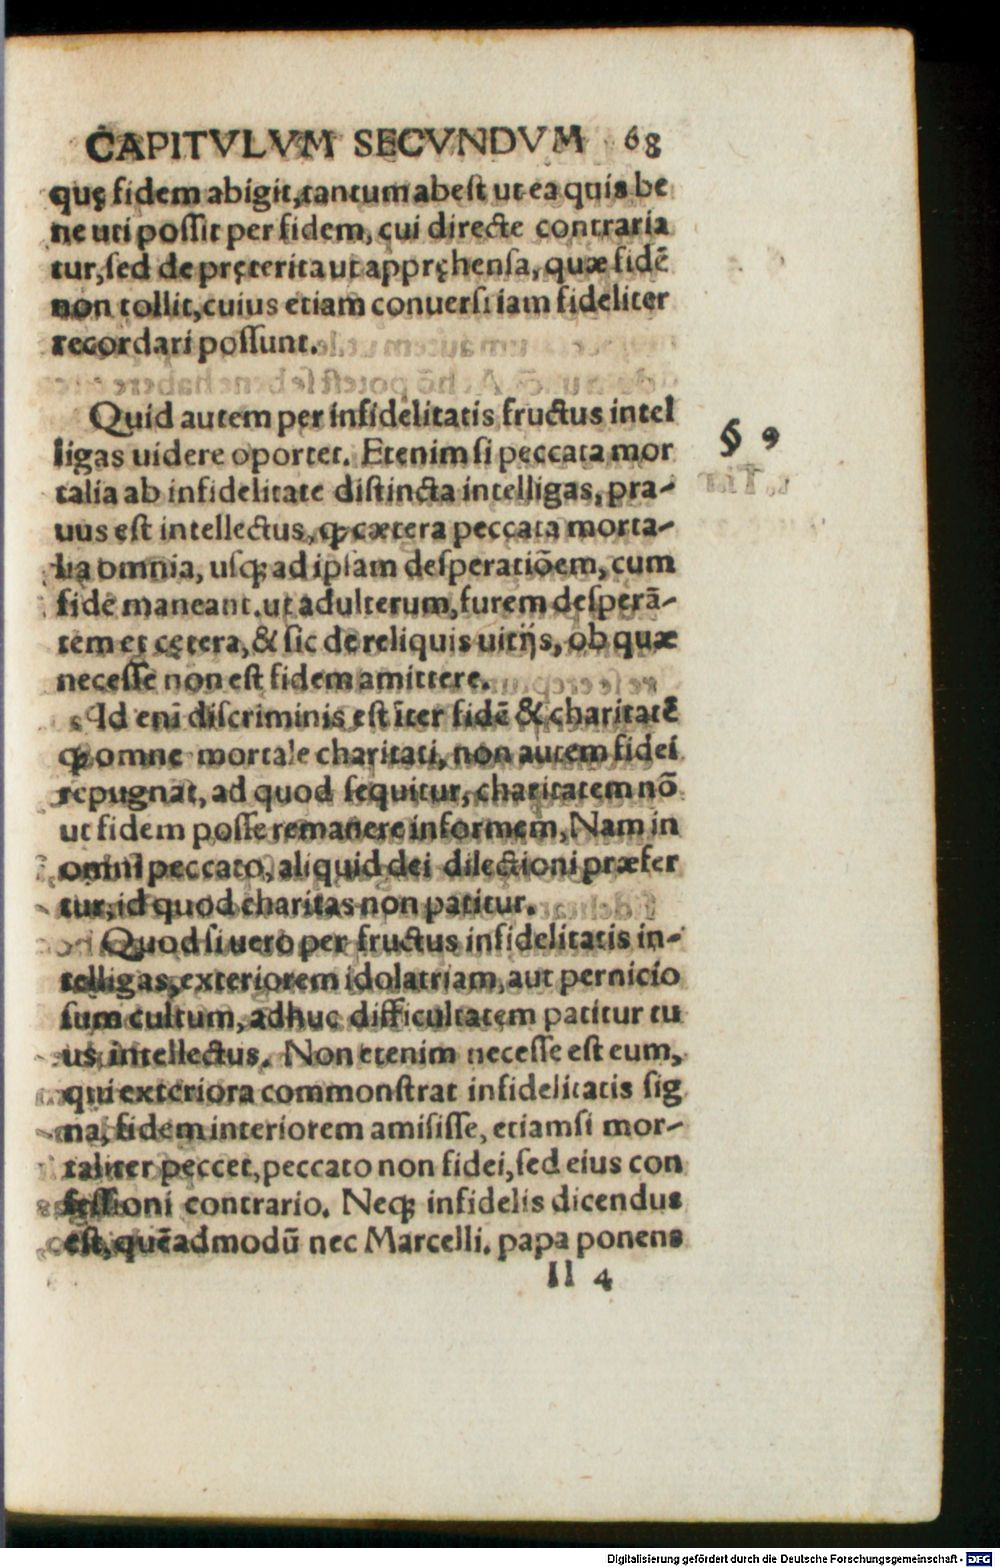 CAPITVLVM SECVNDVM 68
quę fidem abigit, tantum abest ut ea quis be
ne uti possit per fidem, cui directe contraria
tur, sed de pręterita ut appręhensa, quæ fidē
non tollit, cuius etiam conuersi iam fideliter
recordari possunt.
Quid autem per infidelitatis fructus intel
ligas uidere oportet. Etenim si peccata mor
talia ab infidelitate distincta intelligas, pra-
uus est intellectus, ꝙ cætera peccata morta-
lia omnia, usqꝫ ad ipsam desperatiōem, cum
fide maneant. ut adulterum, furem desperā-
tem et cętera, & sic de reliquis uitijs, ob quæ
necesse non est fidem amittere.
Id eni discriminis est īter fidē & charitatē
ꝙ omne mortale charitati, non autem fidei
repugnat, ad quod sequitur, charitatem nō
ut fidem posse remanere informem, Nam in
omni peccato, aliquid dei dilectioni præfer
tur, id quod charitas non patitur.
Quod si uero per fructus infidelitatis in-
telligas, exteriorem idolatriam, aut pernicio
sum cultum, adhuc difficultatem patitur tu
us intellectus. Non etenim necesse est eum,
qui exteriora commonstrat infidelitatis sig
na, fidem interiorem amisisse, etiamsi mor-
taliter peccet, peccato non fidei, sed eius con
fessioni contrario. Neqꝫ infidelis dicendus
est, quēadmodū nec Marcelli. papa ponens
ll 4
§ 9
Digitalisierung gefördert durch die Deutsche Forschungsgemeinschaft - DFG